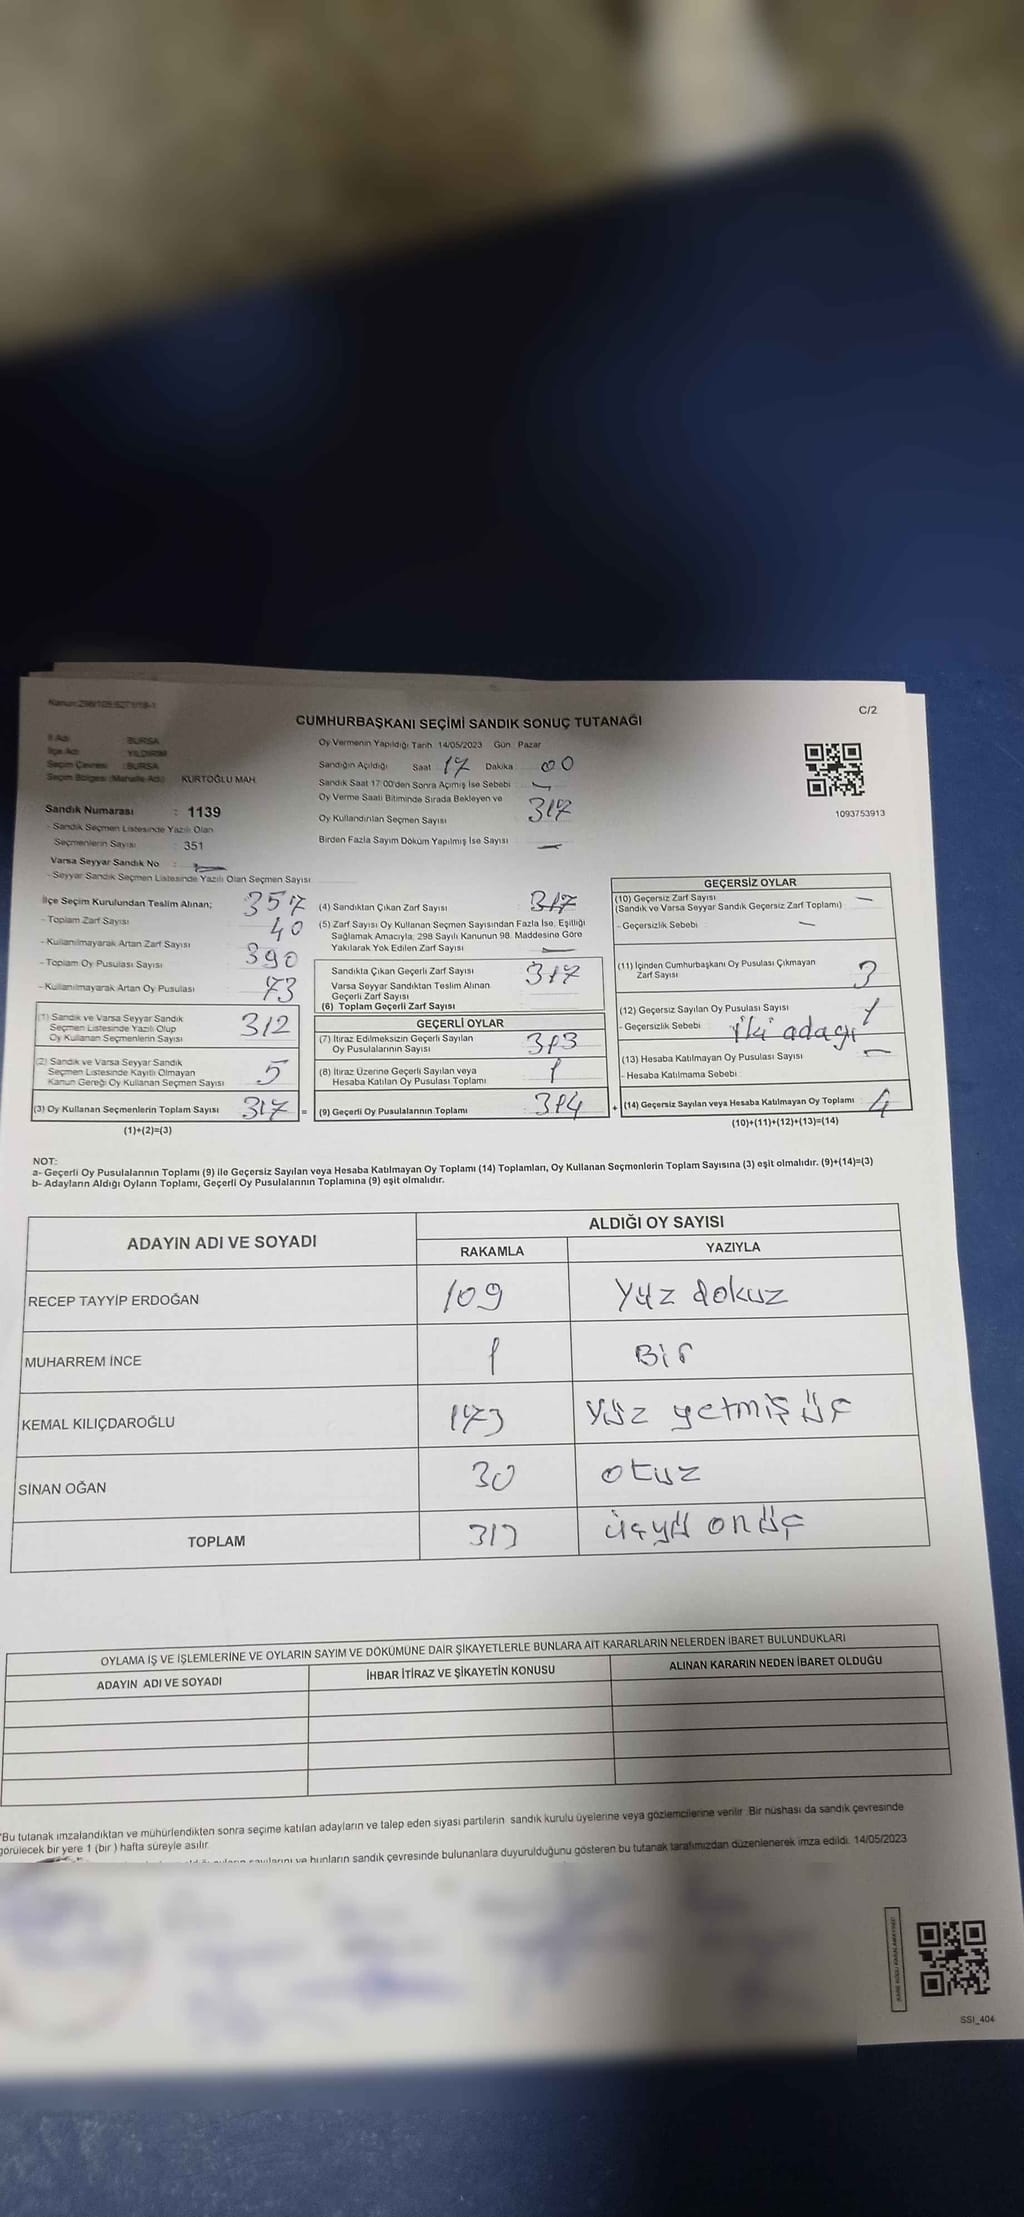 Kanun:298/105;6271/18-1
C/2
CUMHURBAŞKANI SEÇİMİ SANDIK SONUÇ TUTANAĞI
İl Adı : BURSA
İlçe Adı : YILDIRIM
Seçim Çevresi : BURSA
Seçim Bölgesi (Mahalle Adı) KURTOĞLU MAH
Sandık Numarası : 1139
- Sandık Seçmen Listesinde Yazılı Olan
Seçmenlerin Sayısı : 351
Varsa Seyyar Sandık No : -
- Seyyar Sandık Seçmen Listesinde Yazılı Olan Seçmen Sayısı
Oy Vermenin Yapıldığı Tarih 14/05/2023 Gün : Pazar
Sandığın Açıldığı Saat 17 Dakika 00
Sandık Saat 17:00'den Sonra Açımış İse Sebebi -
Oy Verme Saati Bitiminde Sırada Bekleyen ve
Oy Kullandırılan Seçmen Sayısı 317
Birden Fazla Sayım Döküm Yapılmış İse Sayısı -
1093753913
İlçe Seçim Kurulundan Teslim Alınan;
- Toplam Zarf Sayısı 357
- Kullanılmayarak Artan Zarf Sayısı 40
- Toplam Oy Pusulası Sayısı 390
- Kullanılmayarak Artan Oy Pusulası 73
(1) Sandık ve Varsa Seyyar Sandık
Seçmen Listesinde Yazılı Olup
Oy Kullanan Seçmenlerin Sayısı 312
(2) Sandık ve Varsa Seyyar Sandık
Seçmen Listesinde Kayıtlı Olmayan
Kanun Gereği Oy Kullanan Seçmen Sayısı 5
(3) Oy Kullanan Seçmenlerin Toplam Sayısı 317 =
(1)+(2)=(3)
(4) Sandıktan Çıkan Zarf Sayısı 317
(5) Zarf Sayısı Oy Kullanan Seçmen Sayısından Fazla İse, Eşitliği
Sağlamak Amacıyla, 298 Sayılı Kanunun 98. Maddesine Göre
Yakılarak Yok Edilen Zarf Sayısı -
Sandıkta Çıkan Geçerli Zarf Sayısı 317
Varsa Seyyar Sandıktan Teslim Alınan
Geçerli Zarf Sayısı
(6) Toplam Geçerli Zarf Sayısı
GEÇERLİ OYLAR
(7) İtiraz Edilmeksizin Geçerli Sayılan
Oy Pusulalarının Sayısı 313
(8) İtiraz Üzerine Geçerli Sayılan veya
Hesaba Katılan Oy Pusulası Toplamı 1
(9) Geçerli Oy Pusulalarının Toplamı 314 +
GEÇERSİZ OYLAR
(10) Geçersiz Zarf Sayısı -
(Sandık ve Varsa Seyyar Sandık Geçersiz Zarf Toplamı)
- Geçersizlik Sebebi -
(11) İçinden Cumhurbaşkanı Oy Pusulası Çıkmayan
Zarf Sayısı 3
(12) Geçersiz Sayılan Oy Pusulası Sayısı 1
- Geçersizlik Sebebi iki adagı
(13) Hesaba Katılmayan Oy Pusulası Sayısı -
- Hesaba Katılmama Sebebi
(14) Geçersiz Sayılan veya Hesaba Katılmayan Oy Toplamı 4
(10)+(11)+(12)+(13)=(14)
NOT:
a- Geçerli Oy Pusulalarının Toplamı (9) ile Geçersiz Sayılan veya Hesaba Katılmayan Oy Toplamı (14) Toplamları, Oy Kullanan Seçmenlerin Toplam Sayısına (3) eşit olmalıdır. (9)+(14)=(3)
b- Adayların Aldığı Oyların Toplamı, Geçerli Oy Pusulalarının Toplamına (9) eşit olmalıdır.
ADAYIN ADI VE SOYADI
ALDIĞI OY SAYISI
RAKAMLA YAZIYLA
RECEP TAYYİP ERDOĞAN 109 Yüz dokuz
MUHARREM İNCE 1 Bir
KEMAL KILIÇDAROĞLU 173 Yüz yetmiş üç
SİNAN OĞAN 30 otuz
TOPLAM 313 üçyü onüç
OYLAMA İŞ VE İŞLEMLERİNE VE OYLARIN SAYIM VE DÖKÜMÜNE DAİR ŞİKAYETLERLE BUNLARA AİT KARARLARIN NELERDEN İBARET BULUNDUKLARI
ADAYIN ADI VE SOYADI İHBAR İTİRAZ VE ŞİKAYETİN KONUSU ALINAN KARARIN NEDEN İBARET OLDUĞU
*Bu tutanak imzalandıktan ve mühürlendikten sonra seçime katılan adayların ve talep eden siyasi partilerin sandık kurulu üyelerine veya gözlemcilerine verilir. Bir nüshası da sandık çevresinde
görülecek bir yere 1 (bir) hafta süreyle asılır.
bunların sandık çevresinde bulunanlara duyurulduğunu gösteren bu tutanak tarafımızdan düzenlenerek imza edildi. 14/05/2023
SSI_404